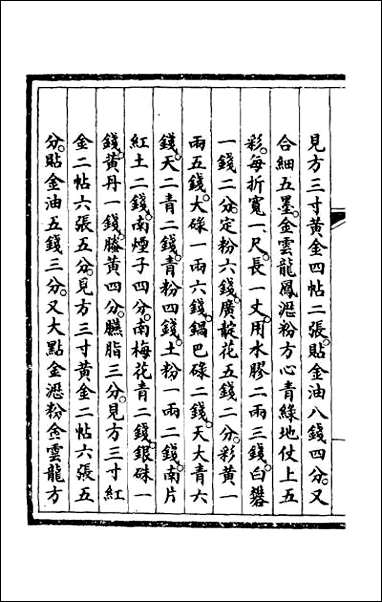 見方三寸黃金四帖二張貼金油八錢四分又
合細五墨金雲龍鳳瀝粉方心青綠地仗上五
彩每折寬一尺長一丈用水膠二兩三錢白礬
一錢二分定粉六錢廣靛花五錢二分彩黃一
兩五錢大碌一兩六錢鍋巴碌二錢天大青六
錢天二青二錢青粉四錢土粉一兩二錢南片
紅土二錢南煙子四分南梅花青二錢銀硃一
錢黃丹一錢籐黃四分臙脂三分見方三寸紅
金二帖六張五分見方三寸黃金二帖六張五
分貼金油五錢三分又大點金瀝粉金雲龍方